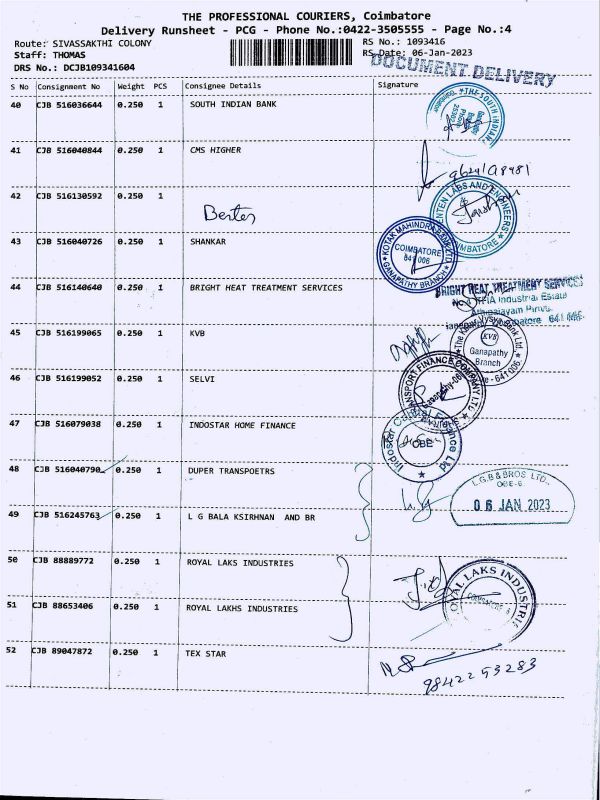 THE PROFESSIONAL COURIERS, Coimbatore
Delivery Runsheet - PCG - Phone No.:0422-3505555 - Page No.:4
Route: SIVASSAKTHI COLONY RS No.: 1093416
Staff: THOMAS RS Date: 06-Jan-2023
DRS No.: DCJB109341604 DOCUMENT DELIVERY
S No Consignment No Weight PCS Consignee Details Signature
40 CJB 516036644 0.250 1 SOUTH INDIAN BANK
THE SOUTH INDIAN
41 CJB 516040844 0.250 1 CMS HIGHER
42 CJB 516130592 0.250 1
LABS AND ENGINEERS
COIMBATORE
43 CJB 516040726 0.250 1 SHANKAR
KOTAK MAHINDRA BANK LTD
COIMBATORE
641 006
GANAPATHY BRANCH
44 CJB 516140640 0.250 1 BRIGHT HEAT TREATMENT SERVICES
BRIGHT HEAT TREATMENT SERVICES
Industrial Estate
45 CJB 516199065 0.250 1 KVB
Vysya Bank Ltd.
KVB
Ganapathy
Branch
641 006
46 CJB 516199052 0.250 1 SELVI
TRANSPORT FINANCE COMPANY LTD
47 CJB 516079038 0.250 1 INDOSTAR HOME FINANCE
Indostar Capital Finance Ltd
CBE
48 CJB 516040790 0.250 1 DUPER TRANSPOETRS
L.G.B & BROS LTD.,
49 CJB 516245763 0.250 1 L G BALA KSIRHNAN AND BR
06 JAN 2023
50 CJB 88889772 0.250 1 ROYAL LAKS INDUSTRIES
ROYAL LAKS INDUSTRIES
COIMBATORE
51 CJB 88653406 0.250 1 ROYAL LAKHS INDUSTRIES
52 CJB 89047872 0.250 1 TEX STAR
9842253283